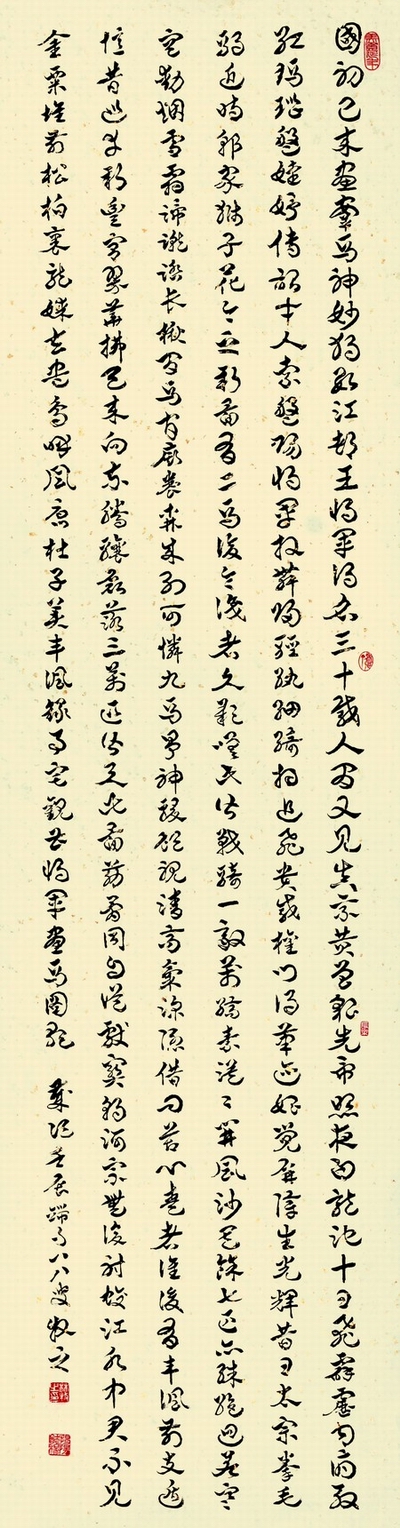 國初已來畫鞍馬神妙獨數江都王將軍得名三十載人間又見真乘黃曾貌先帝照夜白龍池十日飛霹靂內府殷
紅瑪瑙盤婕妤傳詔才人索盤賜將軍拜舞歸輕紈細綺相追飛貴戚權門得筆跡始覺屏障生光輝昔日太宗拳毛
騧近時郭家獅子花今之新圖有二馬復令識者久歎嗟此皆戰騎一敵萬縞素漠〻開風沙其餘七匹亦殊絕迥若寒
空動煙雪霜蹄蹴踏長楸間馬官廝養森成列可憐九馬爭神駿顧視清高氣深穩借問苦心愛者誰後有韋諷前支遁
憶昔巡幸新豐宮翠華拂天來向東騰驤磊落三萬匹皆與此圖筋骨同自從獻寶朝河宗無復射蛟江水中君不見
金粟堆前松柏裏龍媒去盡鳥呼風 唐杜子美韋諷錄事宅觀曹將軍畫馬圖歌 歲次壬辰端午八八叟牧之